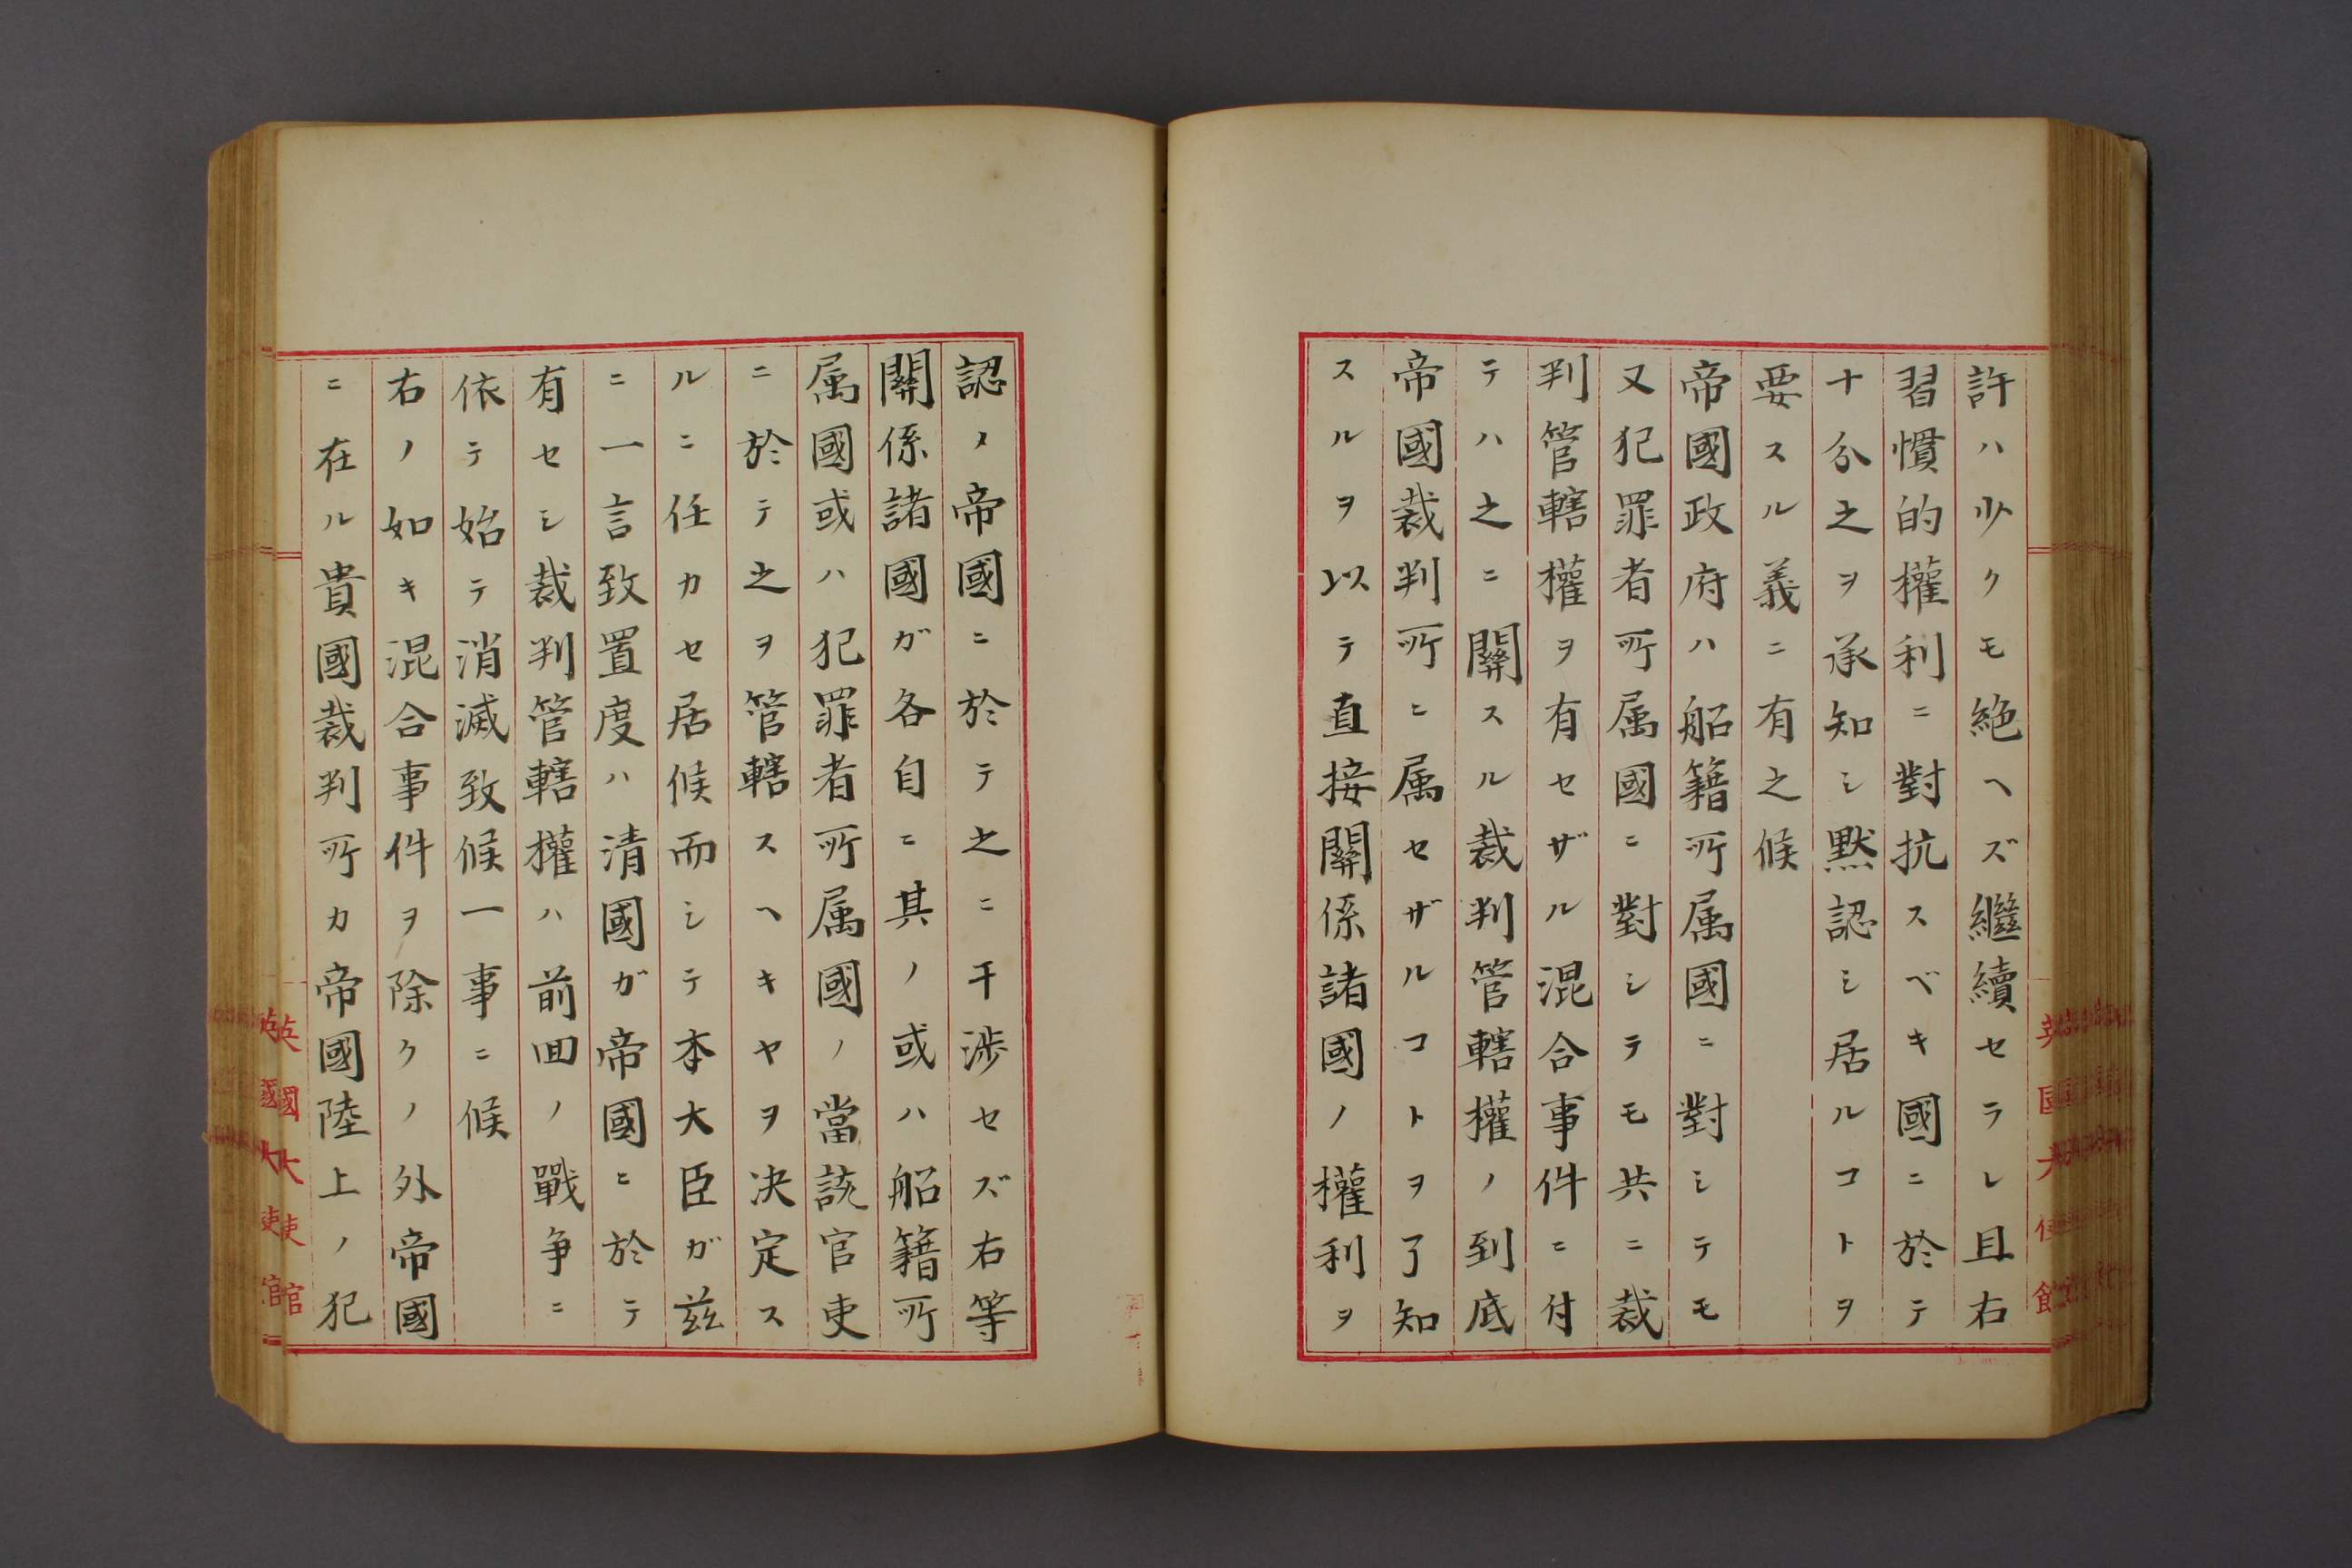 許ハ少クモ絶ヘズ繼續セラレ且右
習慣的權利ニ對抗スベキ國ニ於テ
十分之ヲ承知シ黙認シ居ルコトヲ
要スル義ニ有之候
帝國政府ハ船籍所属國ニ對シテモ
又犯罪者所属國ニ對シテモ共ニ裁
判管轄權ヲ有セザル混合事件ニ付
テハ之ニ關スル裁判管轄權ノ到底
帝國裁判所ニ属セザルコトヲ了知
スルヲ以テ直接關係諸國ノ權利ヲ
認メ帝國ニ於テ之ニ干渉セズ右等
關係諸國ガ各自ニ其ノ或ハ船籍所
属國或ハ犯罪者所属國ノ當該官吏
ニ於テ之ヲ管轄スヘキヤヲ决定ス
ルニ任カセ居候而シテ本大臣ガ茲
ニ一言致置度ハ清國ガ帝國ニ於テ
有セシ裁判管轄權ハ前回ノ戰争ニ
依テ始テ消滅致候一事ニ候
右ノ如キ混合事件ヲ除クノ外帝國
ニ在ル貴國裁判所カ帝國陸上ノ犯
英國大使館